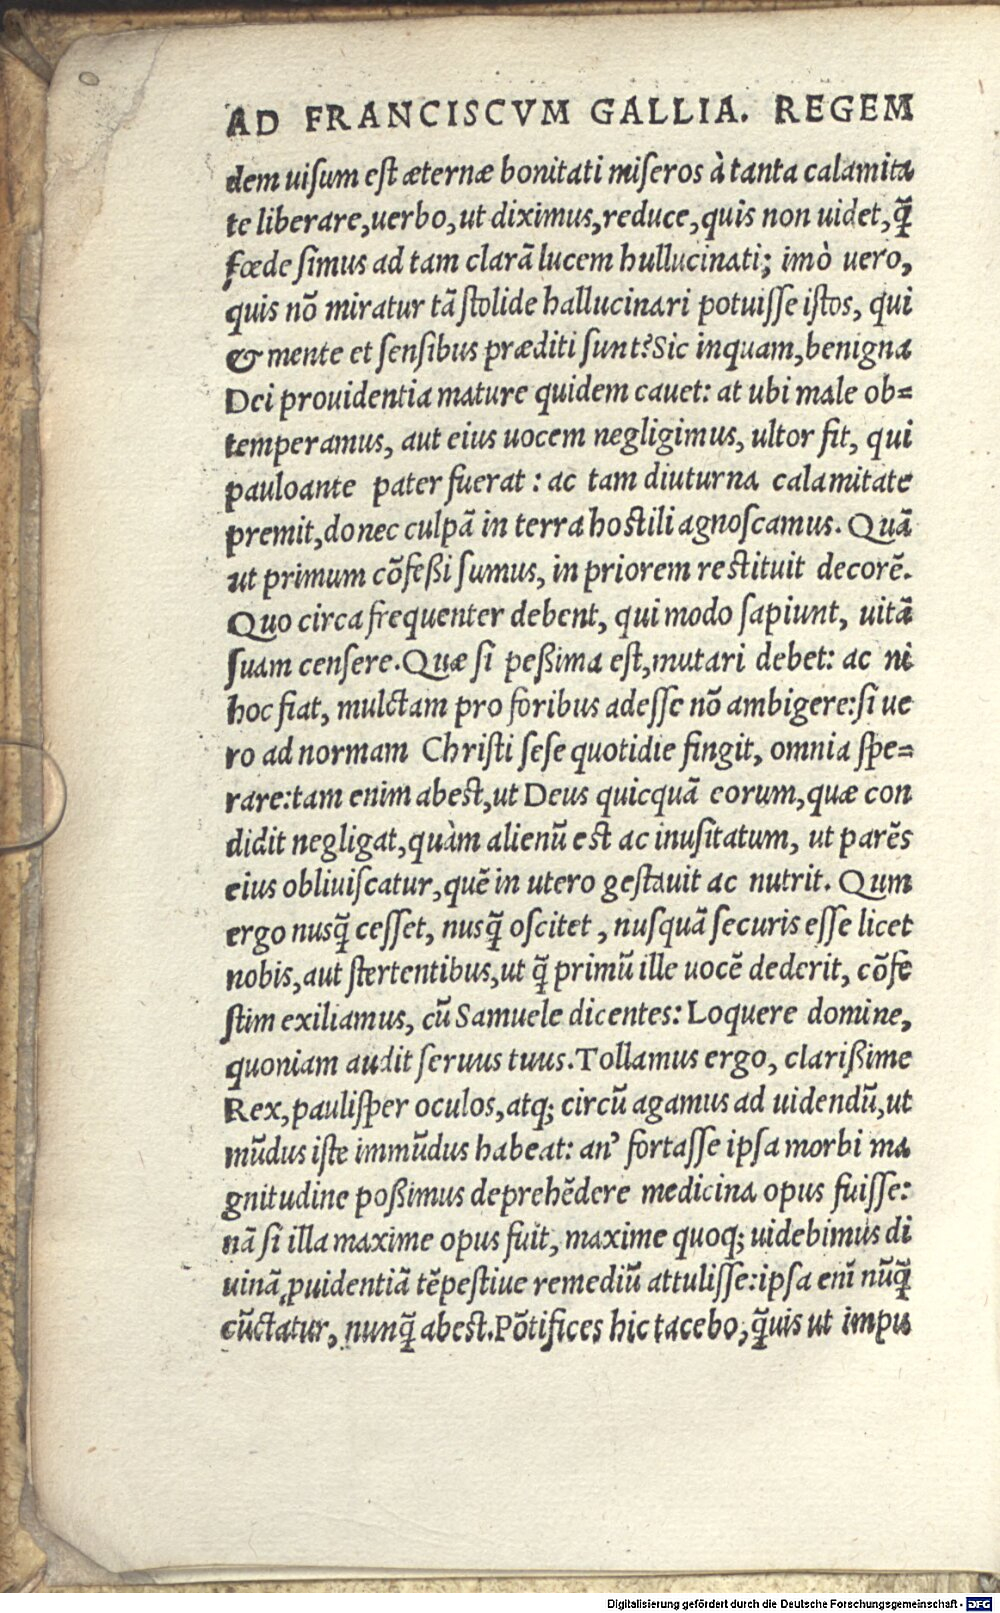 AD FRANCISCVM GALLIA. REGEM
dem uisum est æternæ bonitati miseros à tanta calamita
te liberare, uerbo, ut diximus, reduce, quis non uidet, q̃
fœde simus ad tam clarã lucem hullucinati; imò uero,
quis nõ miratur tã stolide hallucinari potuisse istos, qui
& mente et sensibus præditi sunt? Sic inquam, benigna
Dei prouidentia mature quidem cauet: at ubi male ob=
temperamus, aut eius uocem negligimus, ultor fit, qui
pauloante pater fuerat: ac tam diuturna calamitate
premit, donec culpã in terra hostili agnoscamus. Quã
ut primum cõfeßi sumus, in priorem restituit decorẽ.
Quo circa frequenter debent, qui modo sapiunt, uitã
suam censere. Quæ si peßima est, mutari debet: ac ni
hoc fiat, mulctam pro foribus adesse nõ ambigere: si ue
ro ad normam Christi sese quotidie fingit, omnia spe=
rare: tam enim abest, ut Deus quicquã eorum, quæ con
didit negligat, quàm alienũ est ac inusitatum, ut parẽs
eius obliuiscatur, quẽ in utero gestauit ac nutrit. Qum
ergo nusq̃ cesset, nusq̃ oscitet, nusquã securis esse licet
nobis, aut stertentibus, ut q̃ primũ ille uocẽ dederit, cõfe
stim exiliamus, cũ Samuele dicentes: Loquere domine,
quoniam audit seruus tuus. Tollamus ergo, clarißime
Rex, paulisper oculos, atq; circũ agamus ad uidendũ, ut
mũdus iste immũdus habeat: an' fortasse ipsa morbi ma
gnitudine poßimus deprehẽdere medicina opus fuisse:
nã si illa maxime opus fuit, maxime quoq; uidebimus di
uinã ꝓuidentiã tẽpestiue remediũ attulisse: ipsa enĩ nũq̃
cũctatur, nunq̃ abest. Põtifices hic tacebo, q̃uis ut impu
Digitalisierung gefördert durch die Deutsche Forschungsgemeinschaft - DFG